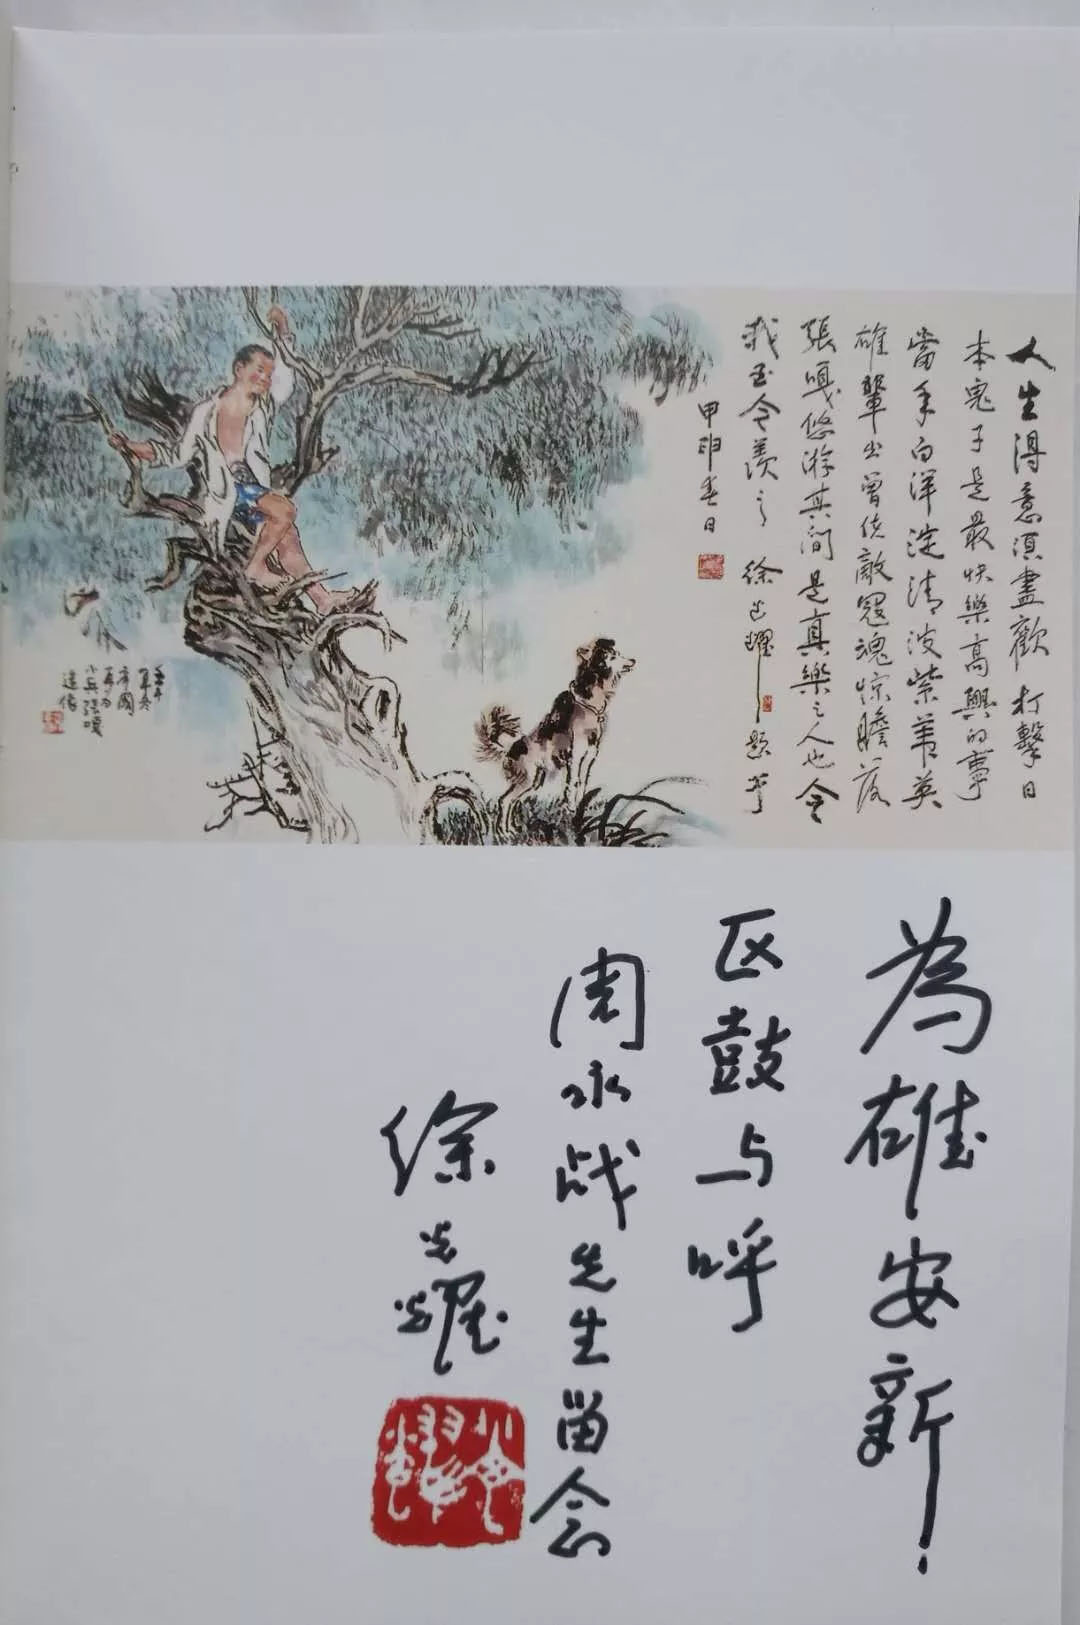 人生得意須盡歡打擊日
本鬼子是最快樂高興的事
當年白洋淀清波紫葦英
雄輩出曾使敵寇魂惊膽落
張嘎悠游其间是真樂之人也令
我至今羨之 徐光耀題
甲申春日
壬午
年冬
小兵張嘎
造像
为雄安新
区鼓与呼
周永战先生留念
徐光耀